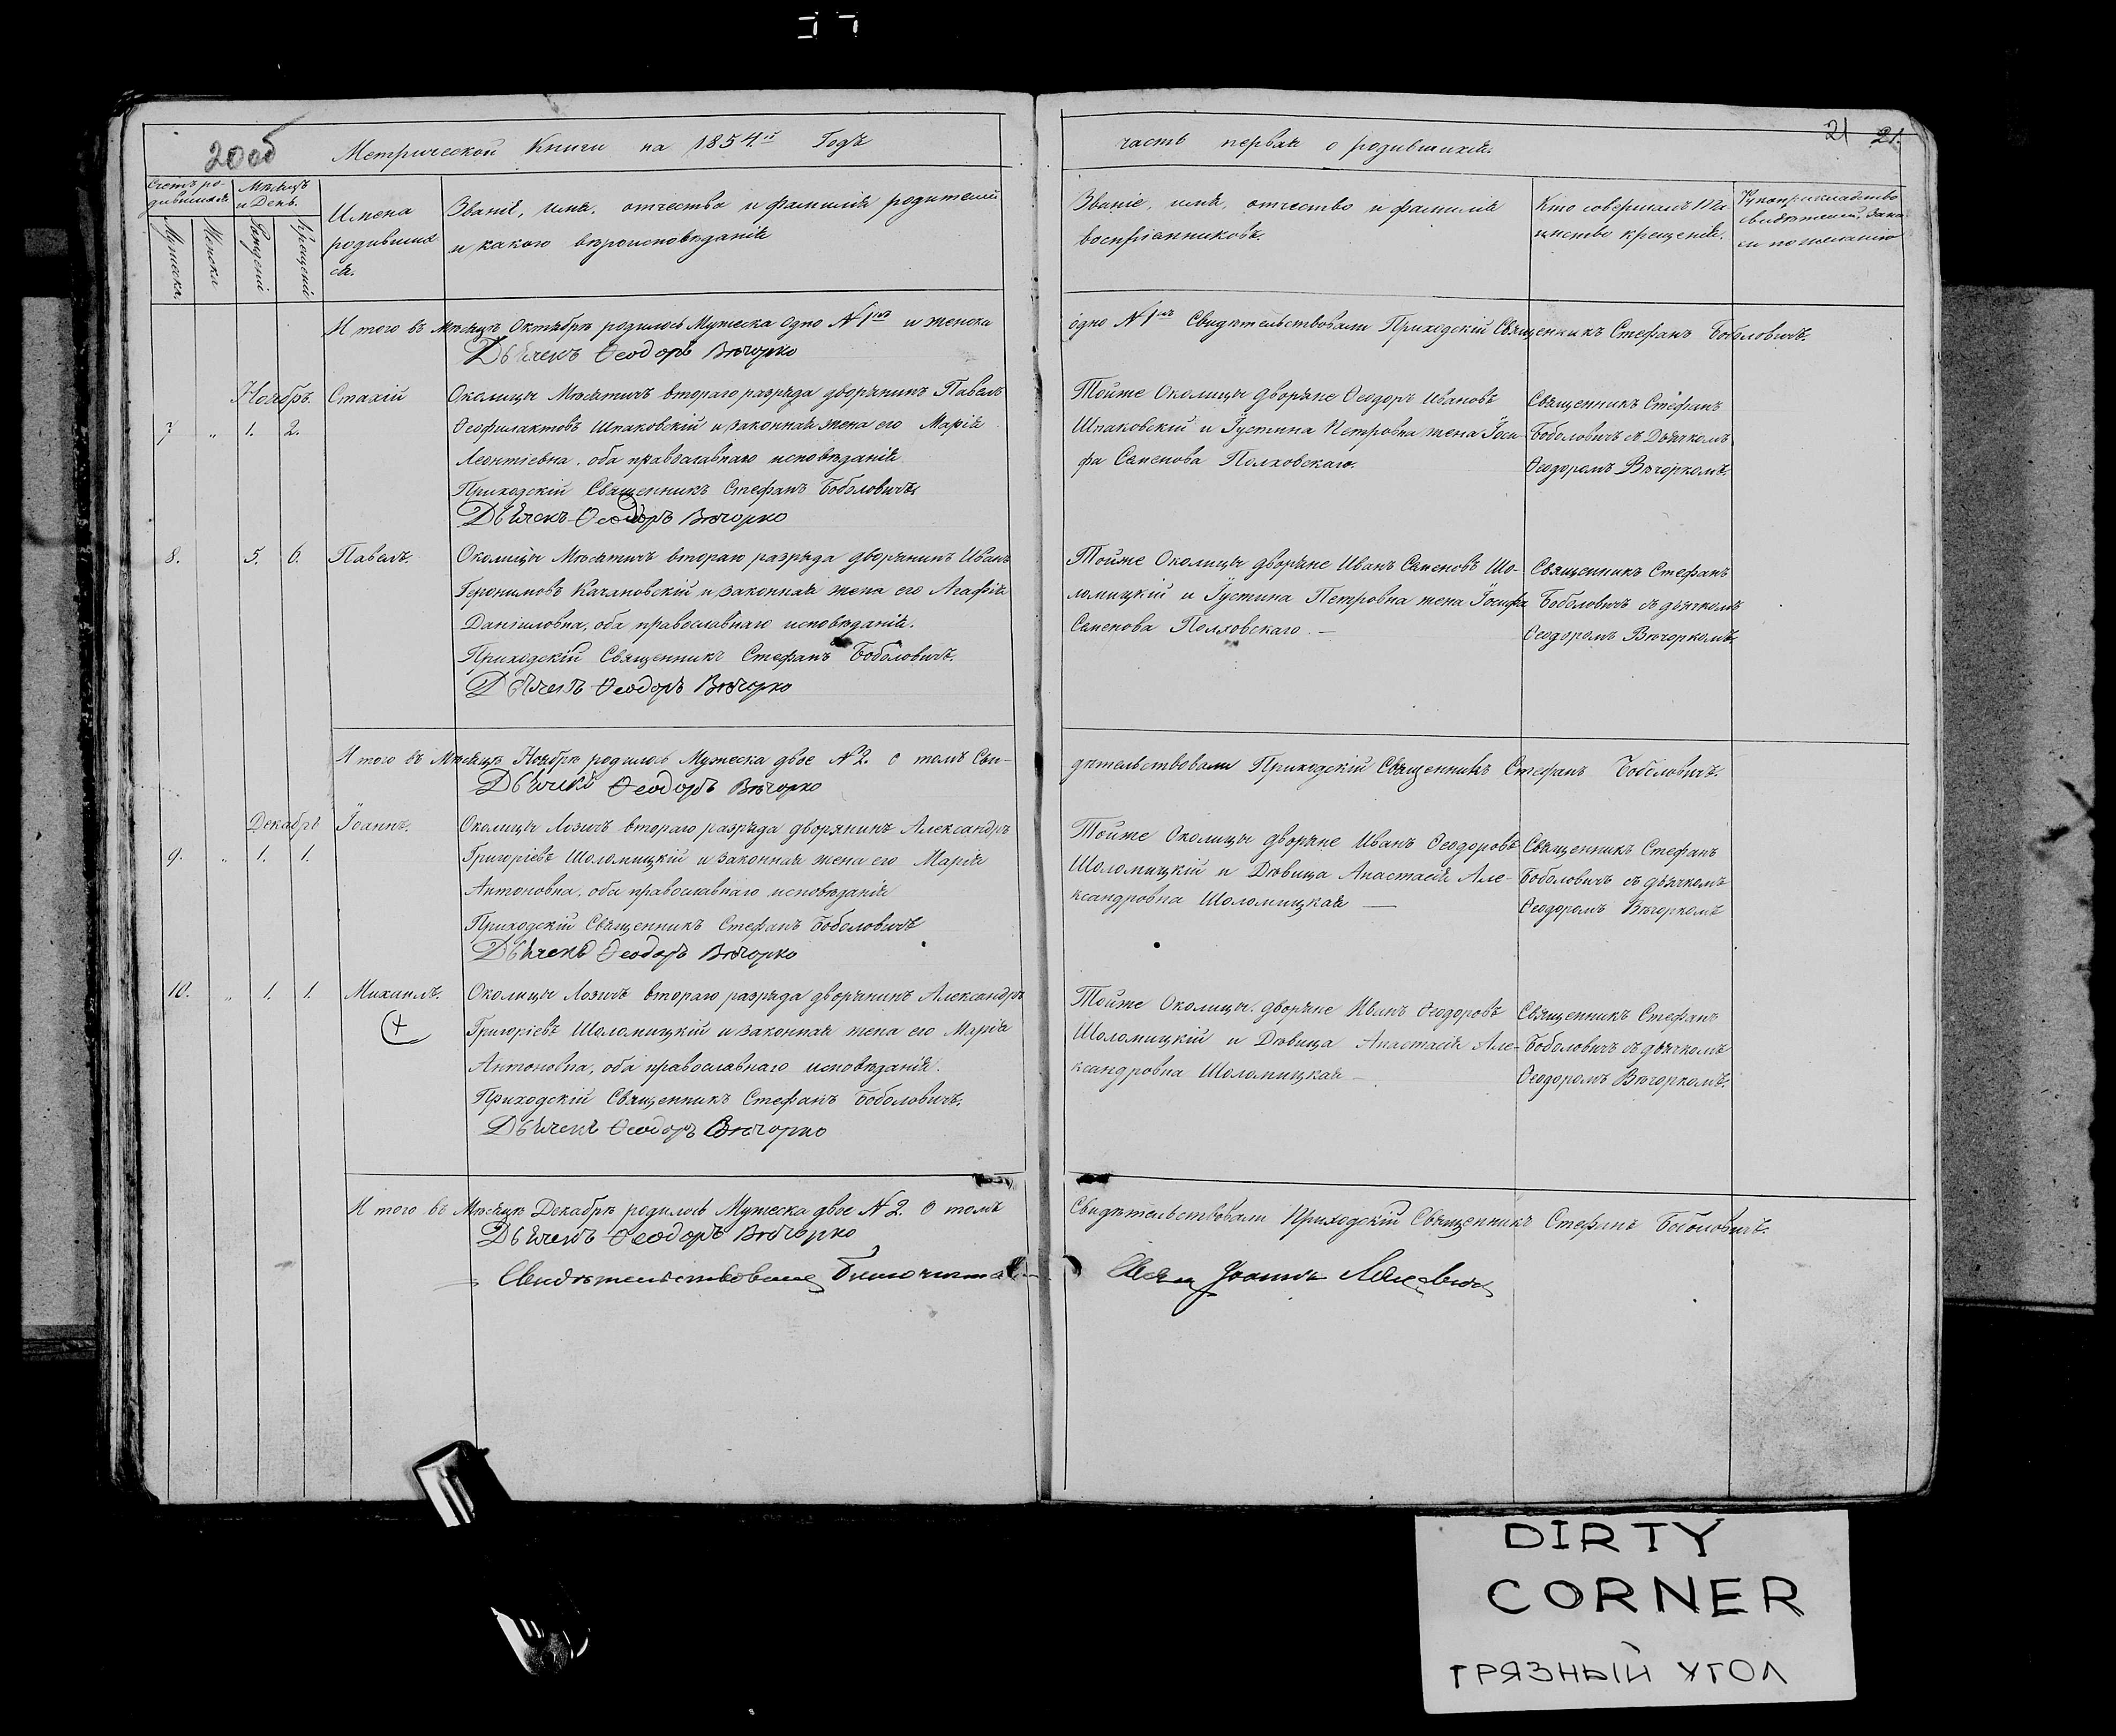 20об
Метрической Книги на 1854й Годъ
часть первая о родившихся.
21 21.
Счетъ ро-
дившихся
Мѣсяцъ
и День.
Мужеска.
Женска
Рожденія
Крещенія
Имена
родивших
ся.
Званіе, имя, отчество и фамилія родителей
и какого вѣроисповѣданія
Званіе, имя, отчество и фамилія
воспріемниковъ.
Кто совершалъ Та
инство крещенія.
Рукоприкладство
свидѣтелей, запи
си по желанію
И того въ Мѣсяцѣ Октябрѣ родилось Мужеска одно №1 и женска
одно №1 Свидѣтельствовали Приходскій Священникъ Стефанъ Боболовичъ.
Дьячекъ Ѳеодоръ Вѣчорко
Ноябрь.
7 „ 1. 2.
Стахій
Околицы Мѣсятичъ втораго разряда дворянинъ Павелъ
Ѳеофилактовъ Шпаковскій и законная жена его Марія
Леонтіевна, оба православнаго исповѣданія
Приходскій Священникъ Стефанъ Боболовичъ
Дьячекъ Ѳеодоръ Вѣчорко
Тойже Околицы дворяне Ѳеодоръ Ивановъ
Шпаковскій и Іустина Петровна жена Іоси-
фа Семенова Полховскаго.
Священникъ Стефанъ
Боболовичъ съ Дьячкомъ
Ѳеодоромъ Вѣчоркомъ.
8. 5. 6.
Павелъ.
Околицы Мѣсятичъ втораго разряда дворянинъ Иванъ
Геронимовъ Качановскій и законная жена его Агафія
Даніиловна, оба православнаго исповѣданія.
Приходскій Священникъ Стефанъ Боболовичъ.
Дьячекъ Ѳеодоръ Вѣчорко
Тойже Околицы дворяне Иванъ Семеновъ Шо-
ломицкій и Іустина Петровна жена Іосифа
Семенова Полховскаго. —
Священникъ Стефанъ
Боболовичъ съ дьячкомъ
Ѳеодоромъ Вѣчоркомъ.
И того въ Мѣсяцѣ Ноябрѣ родилось Мужеска двое №2. О томъ Сви-
дѣтельствовали Приходскій Священникъ Стефанъ Боболовичъ.
Дьячекъ Ѳеодоръ Вѣчорко
Декабрь
9. „ 1. 1.
Іоаннъ.
Околицы Лозичъ втораго разряда дворянинъ Александръ
Григоріевъ Шоломицкій и законная жена его Марія
Антоновна, оба православнаго исповѣданія
Приходскій Священникъ Стефанъ Боболовичъ
Дьячекъ Ѳеодоръ Вѣчорко
Тойже Околицы дворяне Иванъ Ѳеодоровъ
Шоломицкій и Дѣвица Анастасія Але-
ксандровна Шоломицкая —
Священникъ Стефанъ
Боболовичъ съ дьячкомъ
Ѳеодоромъ Вѣчоркомъ
10. „ 1. 1.
Михаилъ.
Околицы Лозичъ втораго разряда дворянинъ Александръ
Григоріевъ Шоломицкій и законная жена его Марія
Антоновна, оба православнаго исповѣданія.
Приходскій Священникъ Стефанъ Боболовичъ.
Дьячекъ Ѳеодоръ Вѣчорко
Тойже Околицы дворяне Иванъ Ѳеодоровъ
Шоломицкій и Дѣвица Анастасія Але-
ксандровна Шоломицкая —
Священникъ Стефанъ
Боболовичъ съ дьячкомъ
Ѳеодоромъ Вѣчоркомъ.
И того въ Мѣсяцѣ Декабрѣ родилось Мужеска двое №2. О томъ
Свидѣтельствовали Приходскій Священникъ Стефанъ Боболовичъ.
Дьячекъ Ѳеодоръ Вѣчорко
Свидѣтельствовалъ Благочинный
Іоаннъ
DIRTY
CORNER
ГРЯЗНЫЙ УГОЛ